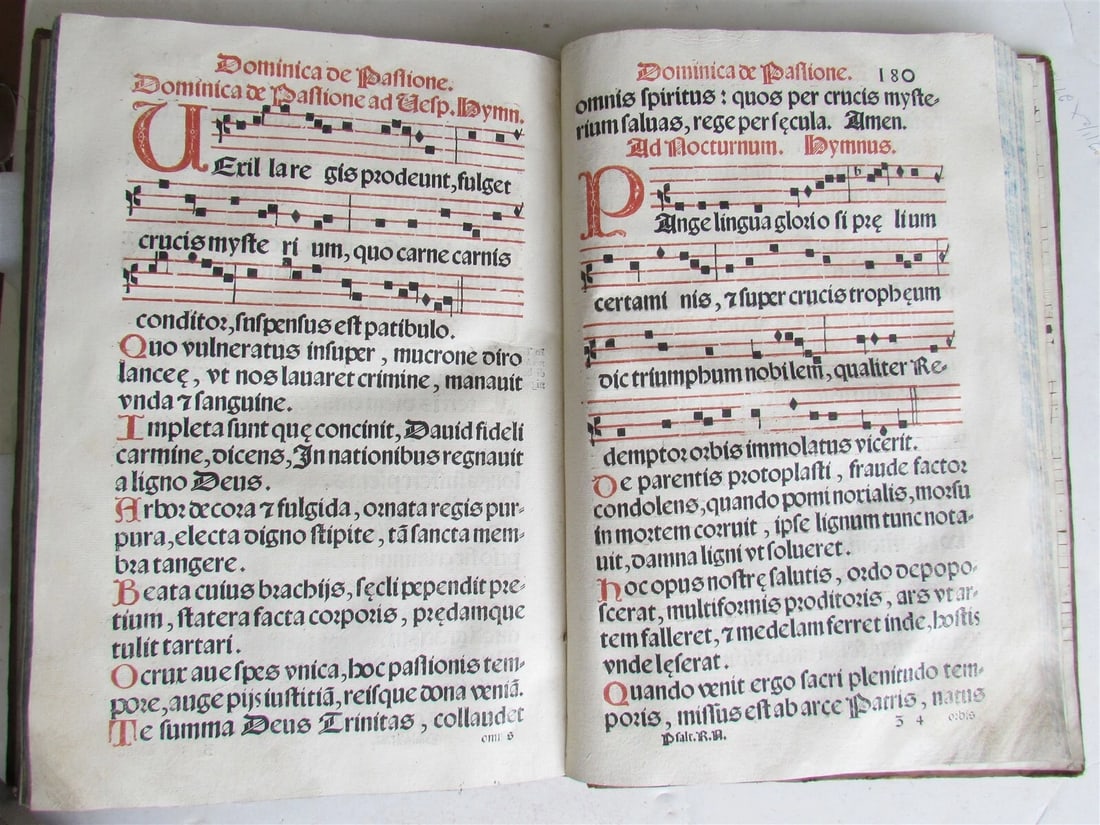 Dominica de Passione.
Dominica de Passione ad Vesp. Hymn.
VExil la re gis prodeunt, fulget
crucis myste ri um, quo carne carnis
conditor, suspensus est patibulo.
Quo vulneratus insuper, mucrone diro
lanceę, vt nos lauaret crimine, manauit
vnda ⁊ sanguine.
Impleta sunt quę concinit, Dauid fideli
carmine, dicens, In nationibus regnauit
a ligno Deus.
Arbor decora ⁊ fulgida, ornata regis pur-
pura, electa digno stipite, tā sancta mem-
bra tangere.
Beata cuius brachijs, sęcli pependit pre-
tium, statera facta corporis, prędamque
tulit tartari.
O crux aue spes vnica, hoc passionis tem-
pore, auge pijs iustitiā, reisque dona veniā.
Te summa Deus Trinitas, collaudet
omnis
Dominica de Passione. 180
omnis spiritus: quos per crucis myste-
rium saluas, rege per sęcula. Amen.
Ad Nocturnum. Hymnus.
PAnge lingua glorio si prę lium
certami nis, ⁊ super crucis trophęum
dic triumphum nobilem, qualiter Re-
demptor orbis immolatus vicerit.
De parentis protoplasti, fraude factor
condolens, quando pomi noxialis, morsu
in mortem corruit, ipse lignum tunc nota-
uit, damna ligni vt solueret.
Hoc opus nostrę salutis, ordo depopo-
scerat, multiformis proditoris, ars vt ar-
tem falleret, ⁊ medelam ferret inde, hostis
vnde lęserat.
Quando venit ergo sacri plenitudo tem-
poris, missus est ab arce Patris, natus
Psalt. R.N. 3 4 orbis